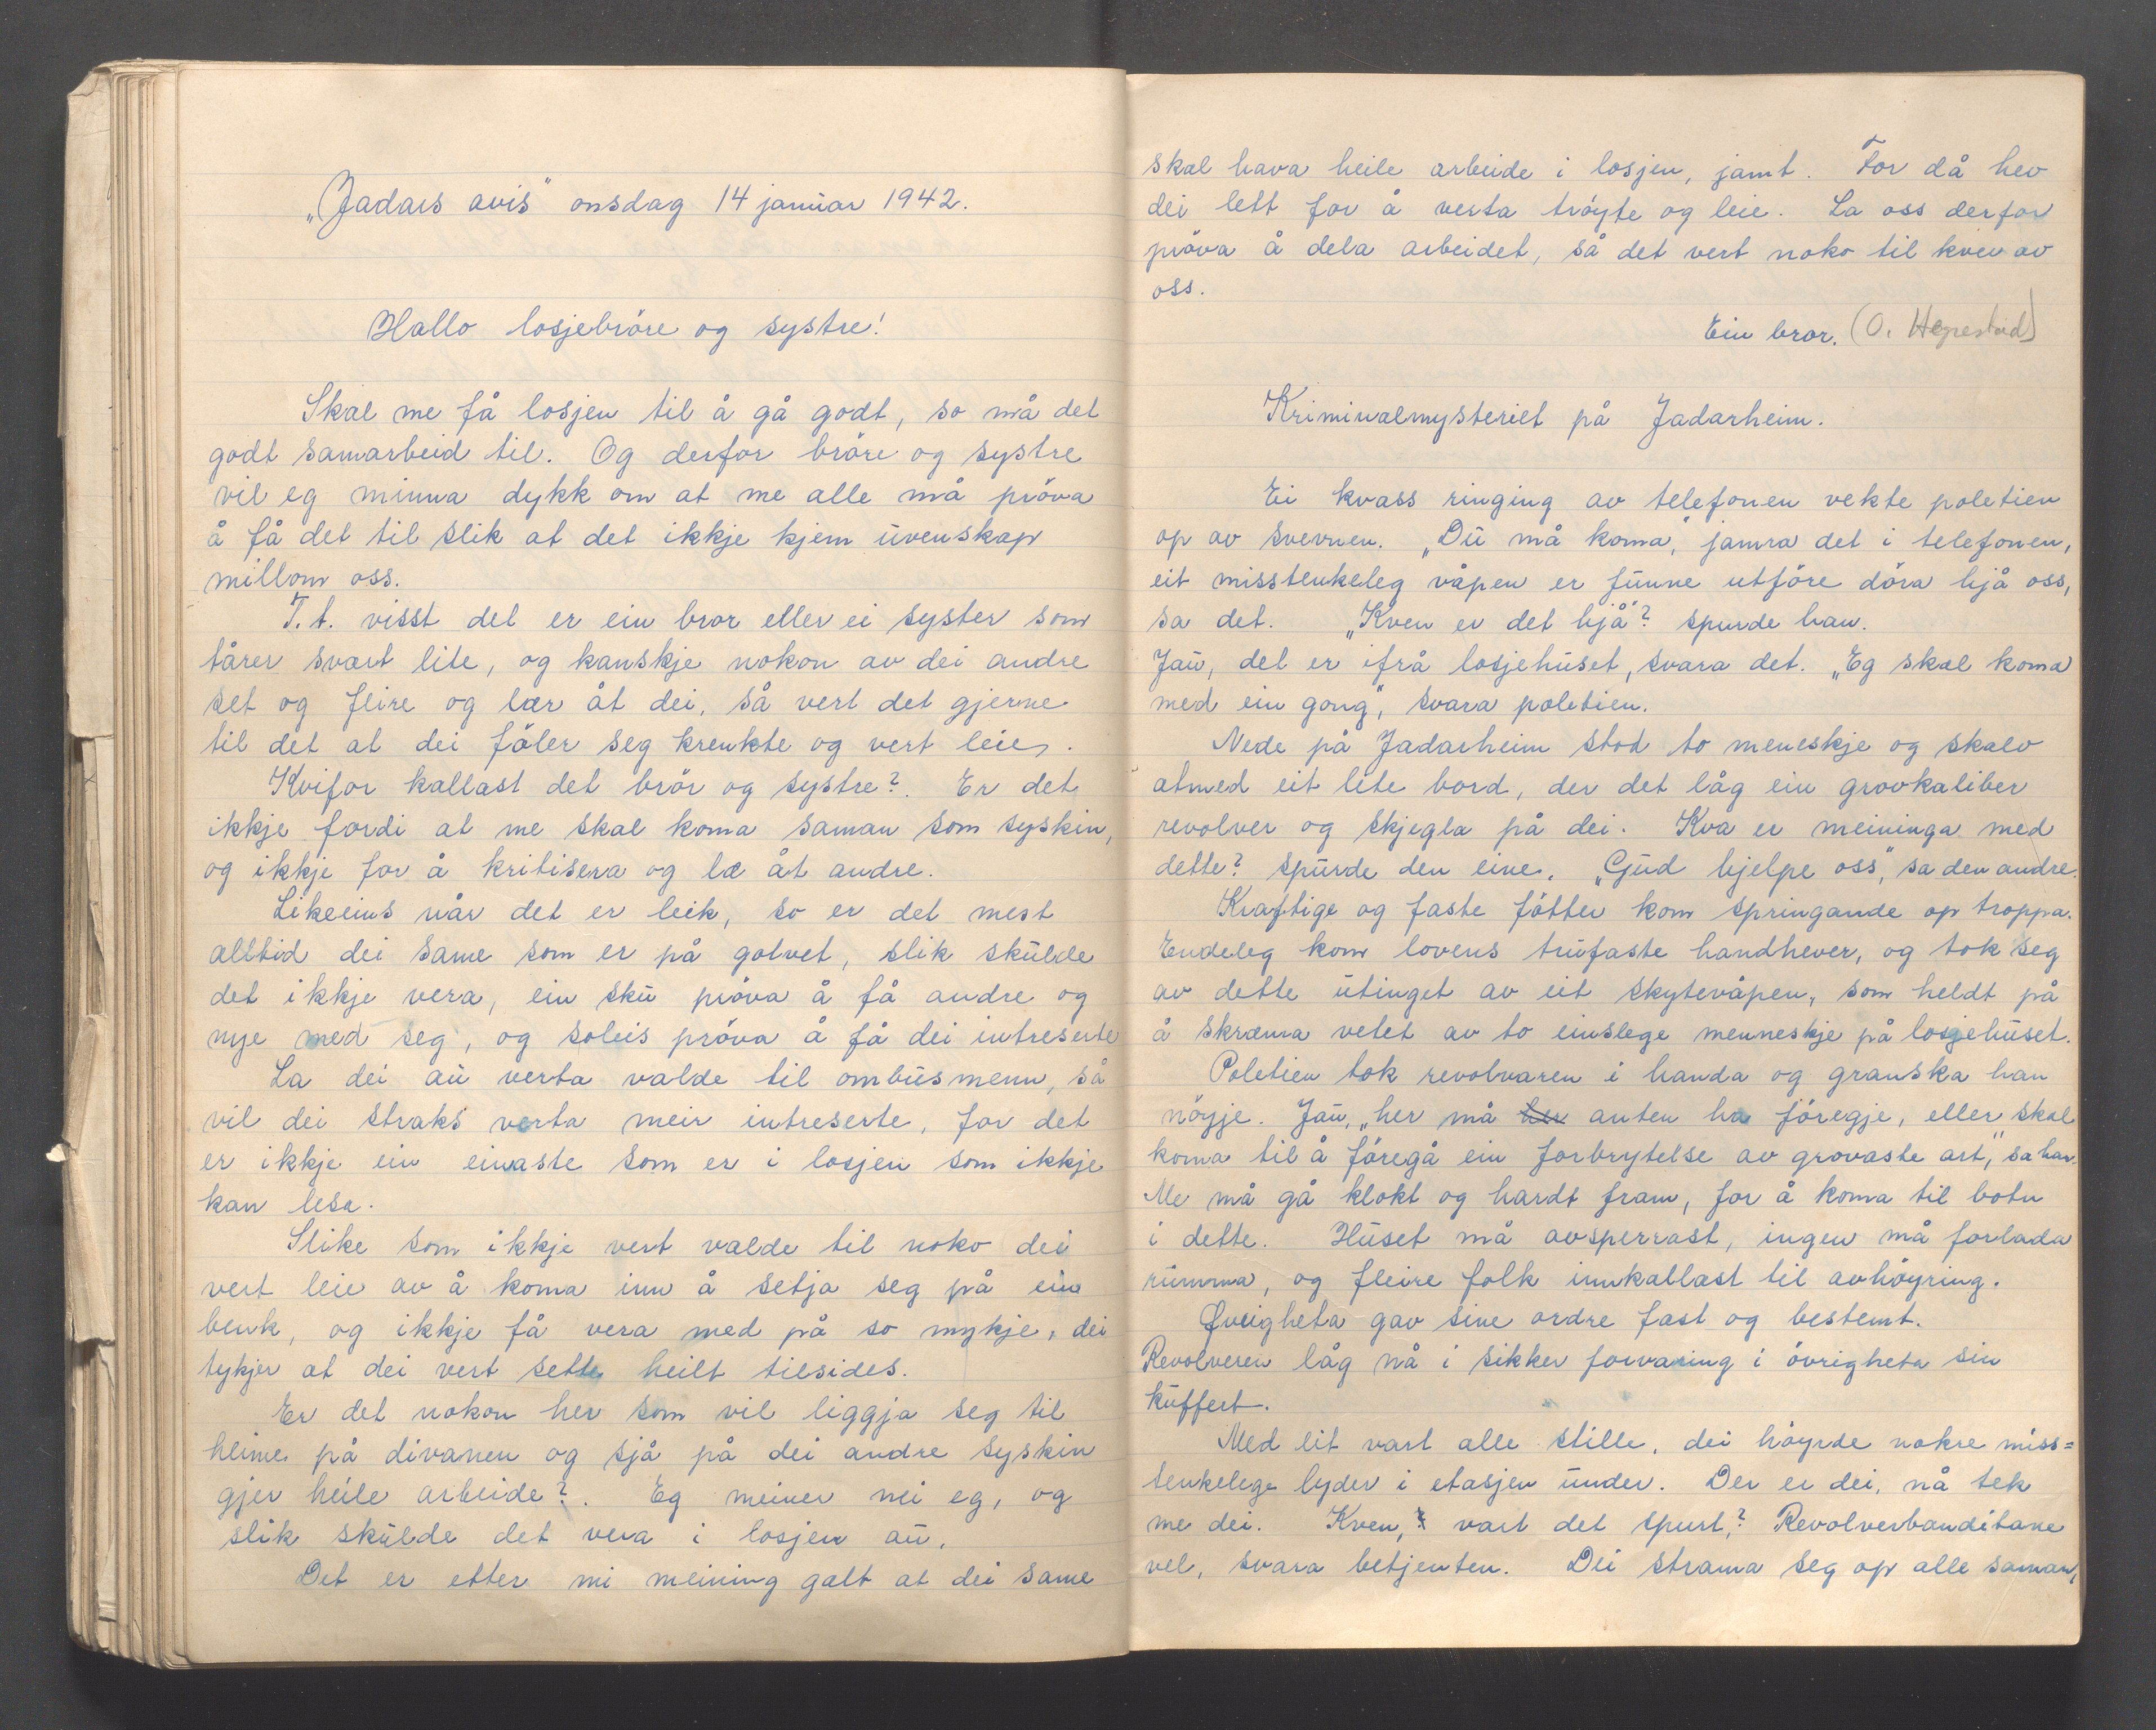 „Jadars avis" onsdag 14 januar 1942.
Hallo losjebröre og systre!
Skal me få losjen til å gå godt, so må det
godt samarbeid til. Og derfor bröre og systre
vil eg minna dykk om at me alle må pröva
å få det til slik at det ikkje kjem uvenskap
millom oss.
T.t. visst det er ein bror eller ei syster som
tårer svært lite, og kanskje nokon av dei andre
set og fleire og lær åt dei, så vert det gjerne
til det at dei föler seg krenkte og vert leie.
Kvifor kallast det brör og systre?. Er det
ikkje fordi at me skal koma saman som syskin,
og ikkje for å kritisera og læ åt andre.
Likeeins når det er leik, so er det mest
alltid dei same som er på golvet, slik skulde
det ikkje vera, ein sku pröva å få andre og
nye med seg, og soleis pröva å få dei intreserte
La dei au verta valde til ombusmenn, så
vil dei straks verta meir intreserte, for det
er ikkje ein einaste som er i losjen som ikkje
kan lesa.
Slike som ikkje vert valde til noko dei
vert leie av å koma inn å setja seg på ein
benk, og ikkje få vera med på so mykje, dei
tykjer at dei vert sette heilt tilsides.
Er det nokon her som vil liggja seg til
heime på divanen og sjå på dei andre syskin
gjer heile arbeide?. Eg meiner nei eg, og
slik skulde det vera i losjen au.
Det er etter mi meining galt at dei same
skal hava heile arbeide i losjen, jamt. For då hev
dei lett for å verta tröyte og leie. La oss derfor
pröva å dela arbeidet, så det vert noko til kver av
oss.
Ein bror. (O. Hegrestad)
Kriminalmysteriet på Jadarheim.
Ei kvass ringing av telefonen vekte poletien
op av svevnen. „Du må koma," jamra det i telefonen,
eit misstenkeleg våpen er funne utföre döra hjå oss,
sa det. „Kven er det hjå"? spurde han.
Jau, det er ifrå losjehuset, svara det. „Eg skal koma
med ein gong", svara poletien.
Nede på Jadarheim stod to meneskje og skalv
atmed eit lite bord, der det låg ein grovkaliber
revolver og skjegla på dei. Kva er meininga med
dette? spurde den eine. „Gud hjelpe oss", sa den andre.
Kraftige og faste fötter kom springande op troppa.
Endeleg kom lovens trufaste handhever, og tok seg
av dette utinget av eit skytevåpen, som heldt på
å skræma vetet av to einslege menneskje på losjehuset.
Poletien tok revolvaren i handa og granska han
nöyje. Jau, „her må her anten ha föregje, eller skal
koma til å föregå ein forbrytelse av grovaste art", sa han.
Me må gå klokt og hardt fram, for å koma til botn
i dette. Huset må avsperrast, ingen må forlada
rumma, og fleire folk innkallast til avhöyring.
Øvrigheta gav sine ordre fast og bestemt.
Revolveren låg nå i sikker forvaring i övrigheta sin
kuffert.
Med eit vart alle stille, dei höyrde nokre miss=
tenkelege lyder i etasjen under. Der er dei, nå tek
me dei. Kven, vart det spurt,? Revolverbanditane
vel, svara betjenten. Dei strama seg op alle saman,